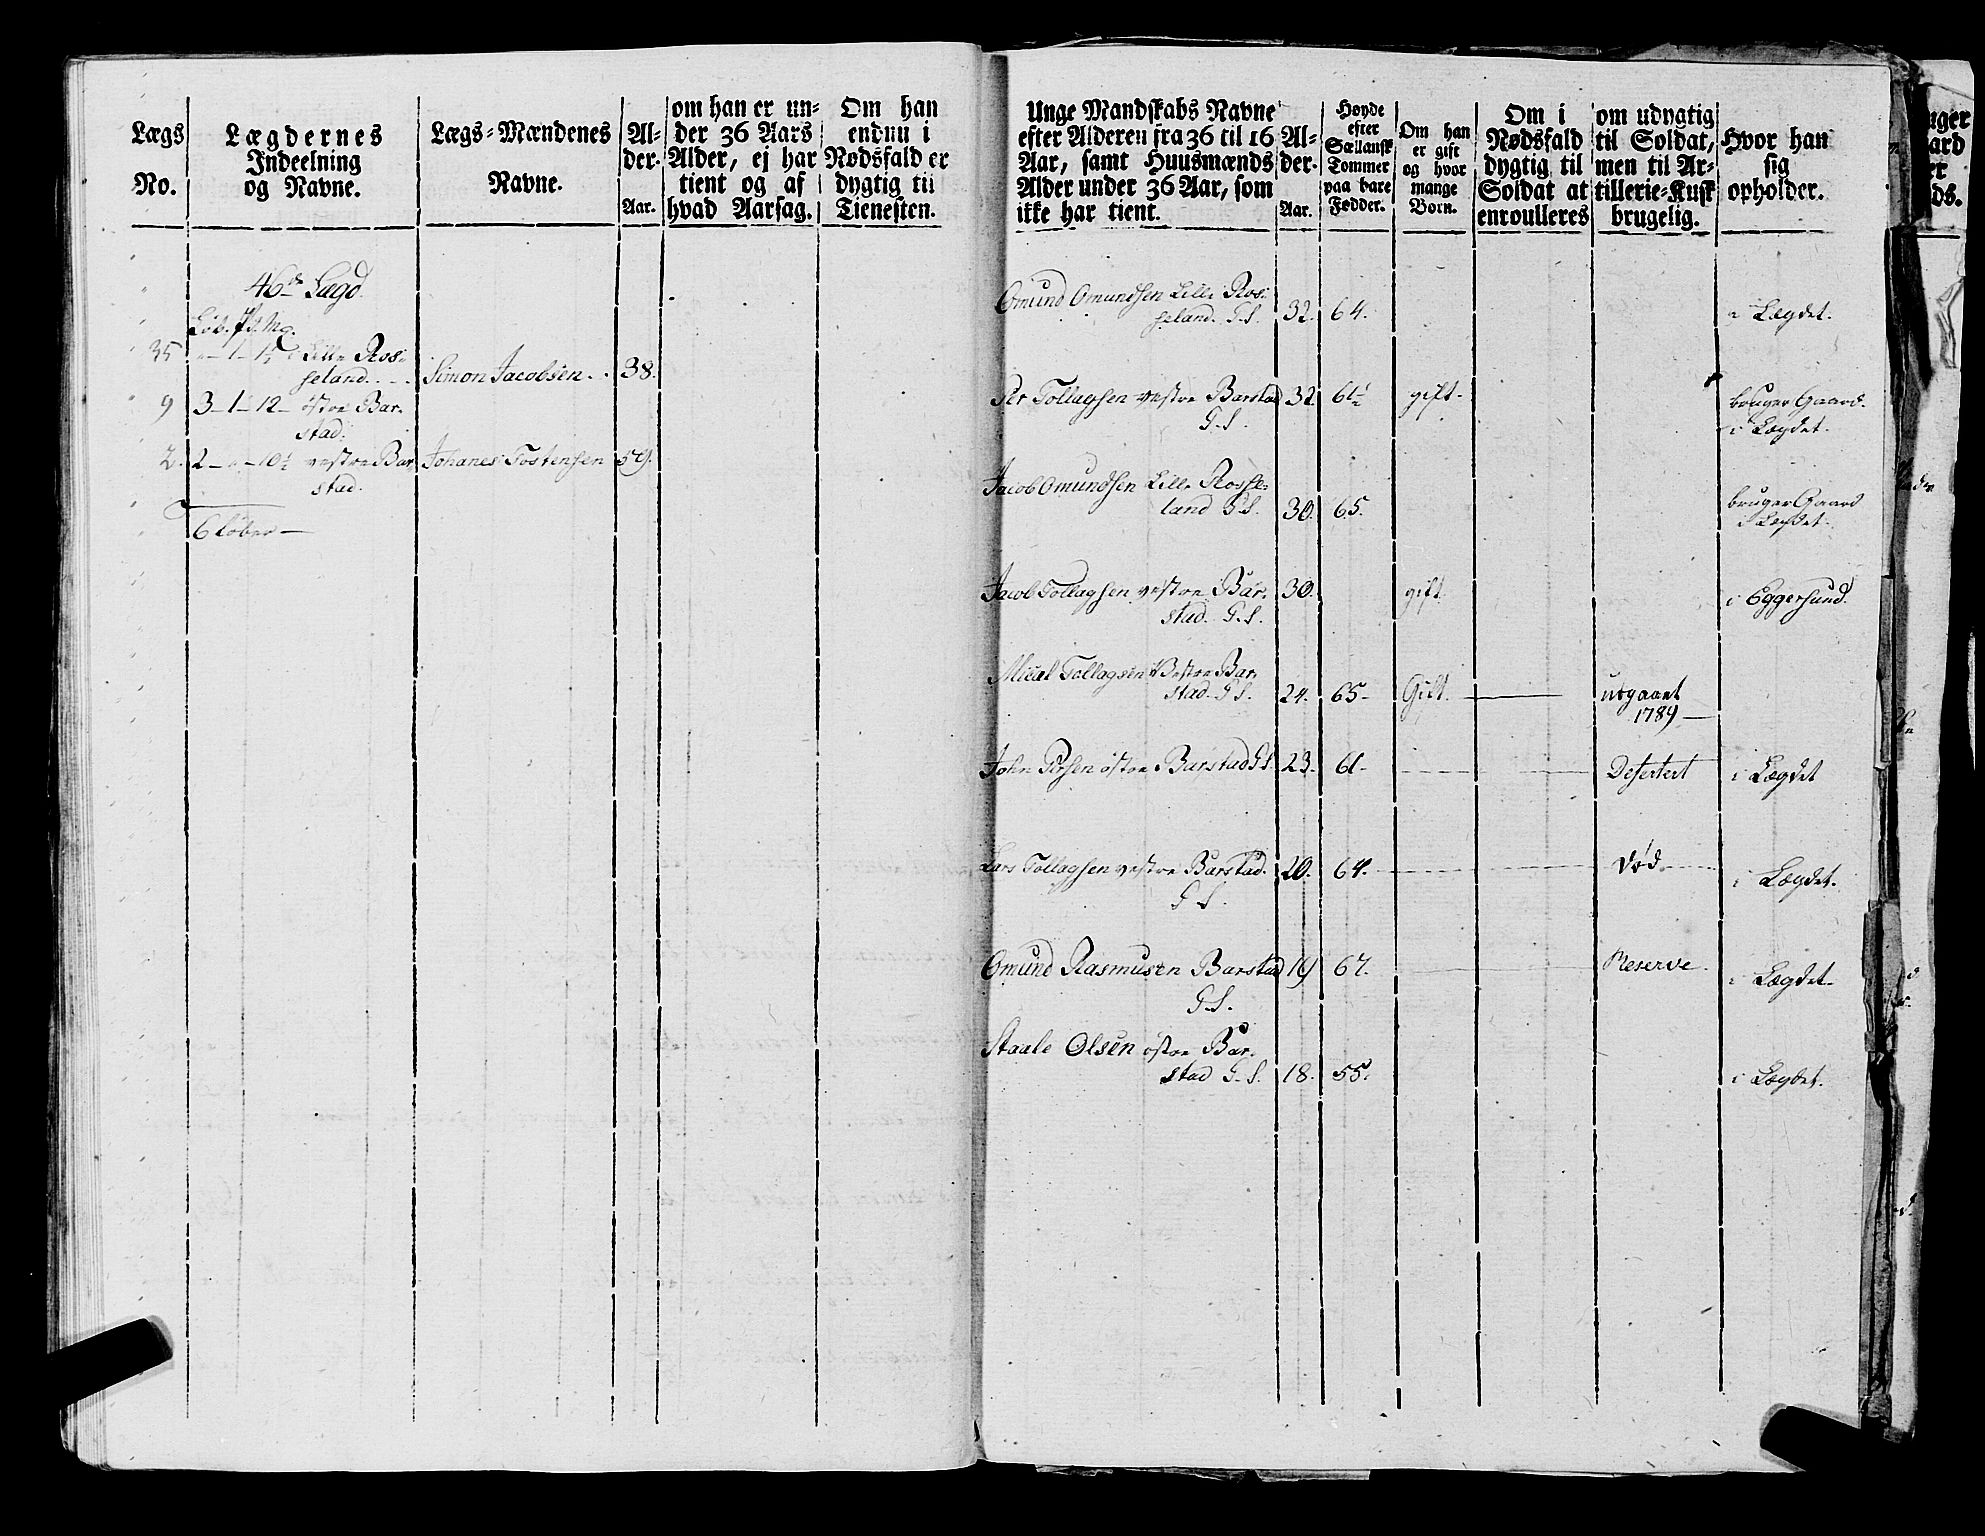 Lægs
No.
Lægdernes
Indeelning
og Navne.
Lægs-Mændenes
Navne.
Al-
der.
Aar.
om han er un-
der 36 Aars
Alder, ej har
tient og af
hvad Aarsag.
Om han
endnu i
Nødsfald er
dygtig til
Tienesten.
46de Lægd.
Løb. Pd. Mg.
35 - - 1 - 15 Lille Ros-
seland. Simon Jacobsen. 38.
9 3 - 1 - 12 - østre Bar-
stad.
2. 2 - - - 10½ vestre Bar Johanes Tostensen 59.
stad.
6 Løber -
Unge Mandskabs Navne
efter Alderen fra 36 til 16
Aar, samt Huusmænds
Alder under 36 Aar, som
ikke har tient.
Al-
der.
Aar.
Høyde
efter
Sællansk
Tommer
paa bare
Fødder.
Om han
er gift
og hvor
mange
Børn.
Om i
Nødsfald
dygtig til
Soldat at
enroulleres
om udygtig
til Soldat,
men til Ar-
tillerie-Kusk
brugelig.
Hvor han
sig
opholder.
Omund Omundsen Lille Ros-
seland. G.S. 32. 64. i Lægdet.
Per Tollagsen vestre Barstad 32. 61½ gift. bruger Gaard.
G.S. i Lægdet.
Jacob Omundsen Lille Rosse-
land G.S. 30. 65. bruger Gaard
i Lægdet.
Jacob Tollagsen vestre Bar- 30. gift. i Eggersund.
stad. G.S.
Micel Tollagsen Vestre Bar-
stad. G.S. 24. 65 Gift. udgaaet
1789
John Persen østre Barstad G.S. 23. 61 Desertert i Lægdet
Lars Tollagsen vestre Barstad. 20. 64. død. i Lægdet.
G.S.
Omund Rasmusen Barstad 19 67. Reserve. i Lægdet.
G.S.
Staale Olsen østre Bar-
stad G.S. 18. 55. i Lægdet.